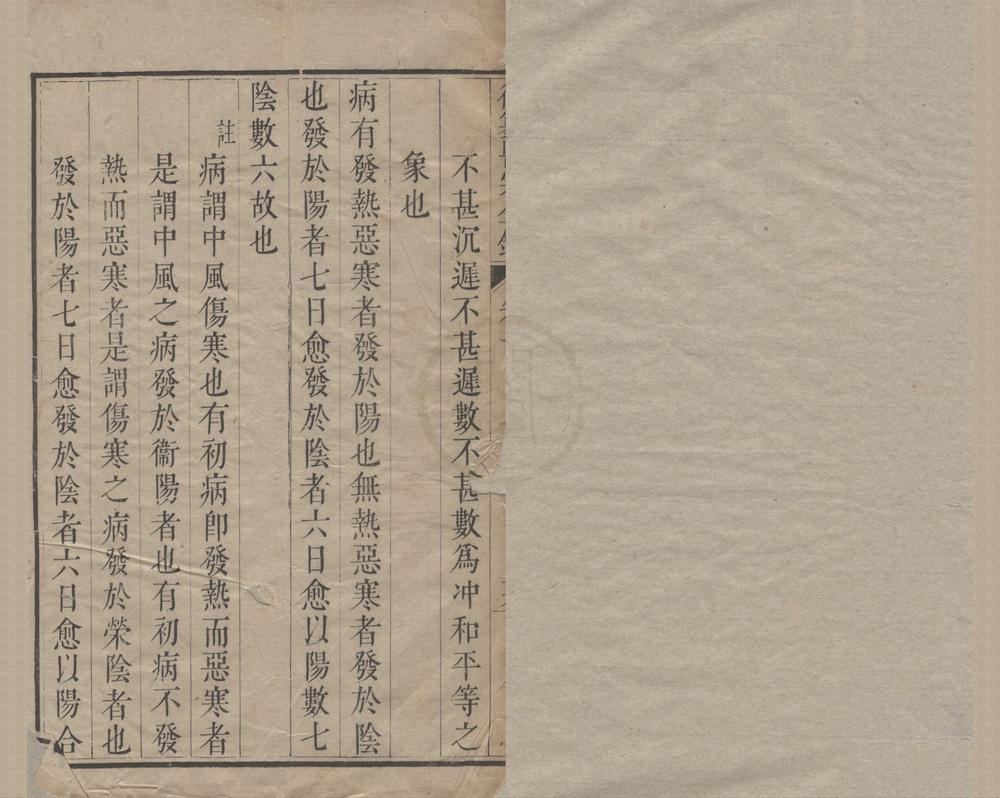 不甚沉遲不甚遲數不甚數爲冲和平等之
象也
病有發熱惡寒者發於陽也無熱惡寒者發於陰
也發於陽者七日愈發於陰者六日愈以陽數七
陰數六故也
註病謂中風傷寒也有初病卽發熱而惡寒者
是謂中風之病發於衞陽者也有初病不發
熱而惡寒者是謂傷寒之病發於榮陰者也
發於陽者七日愈發於陰者六日愈以陽合